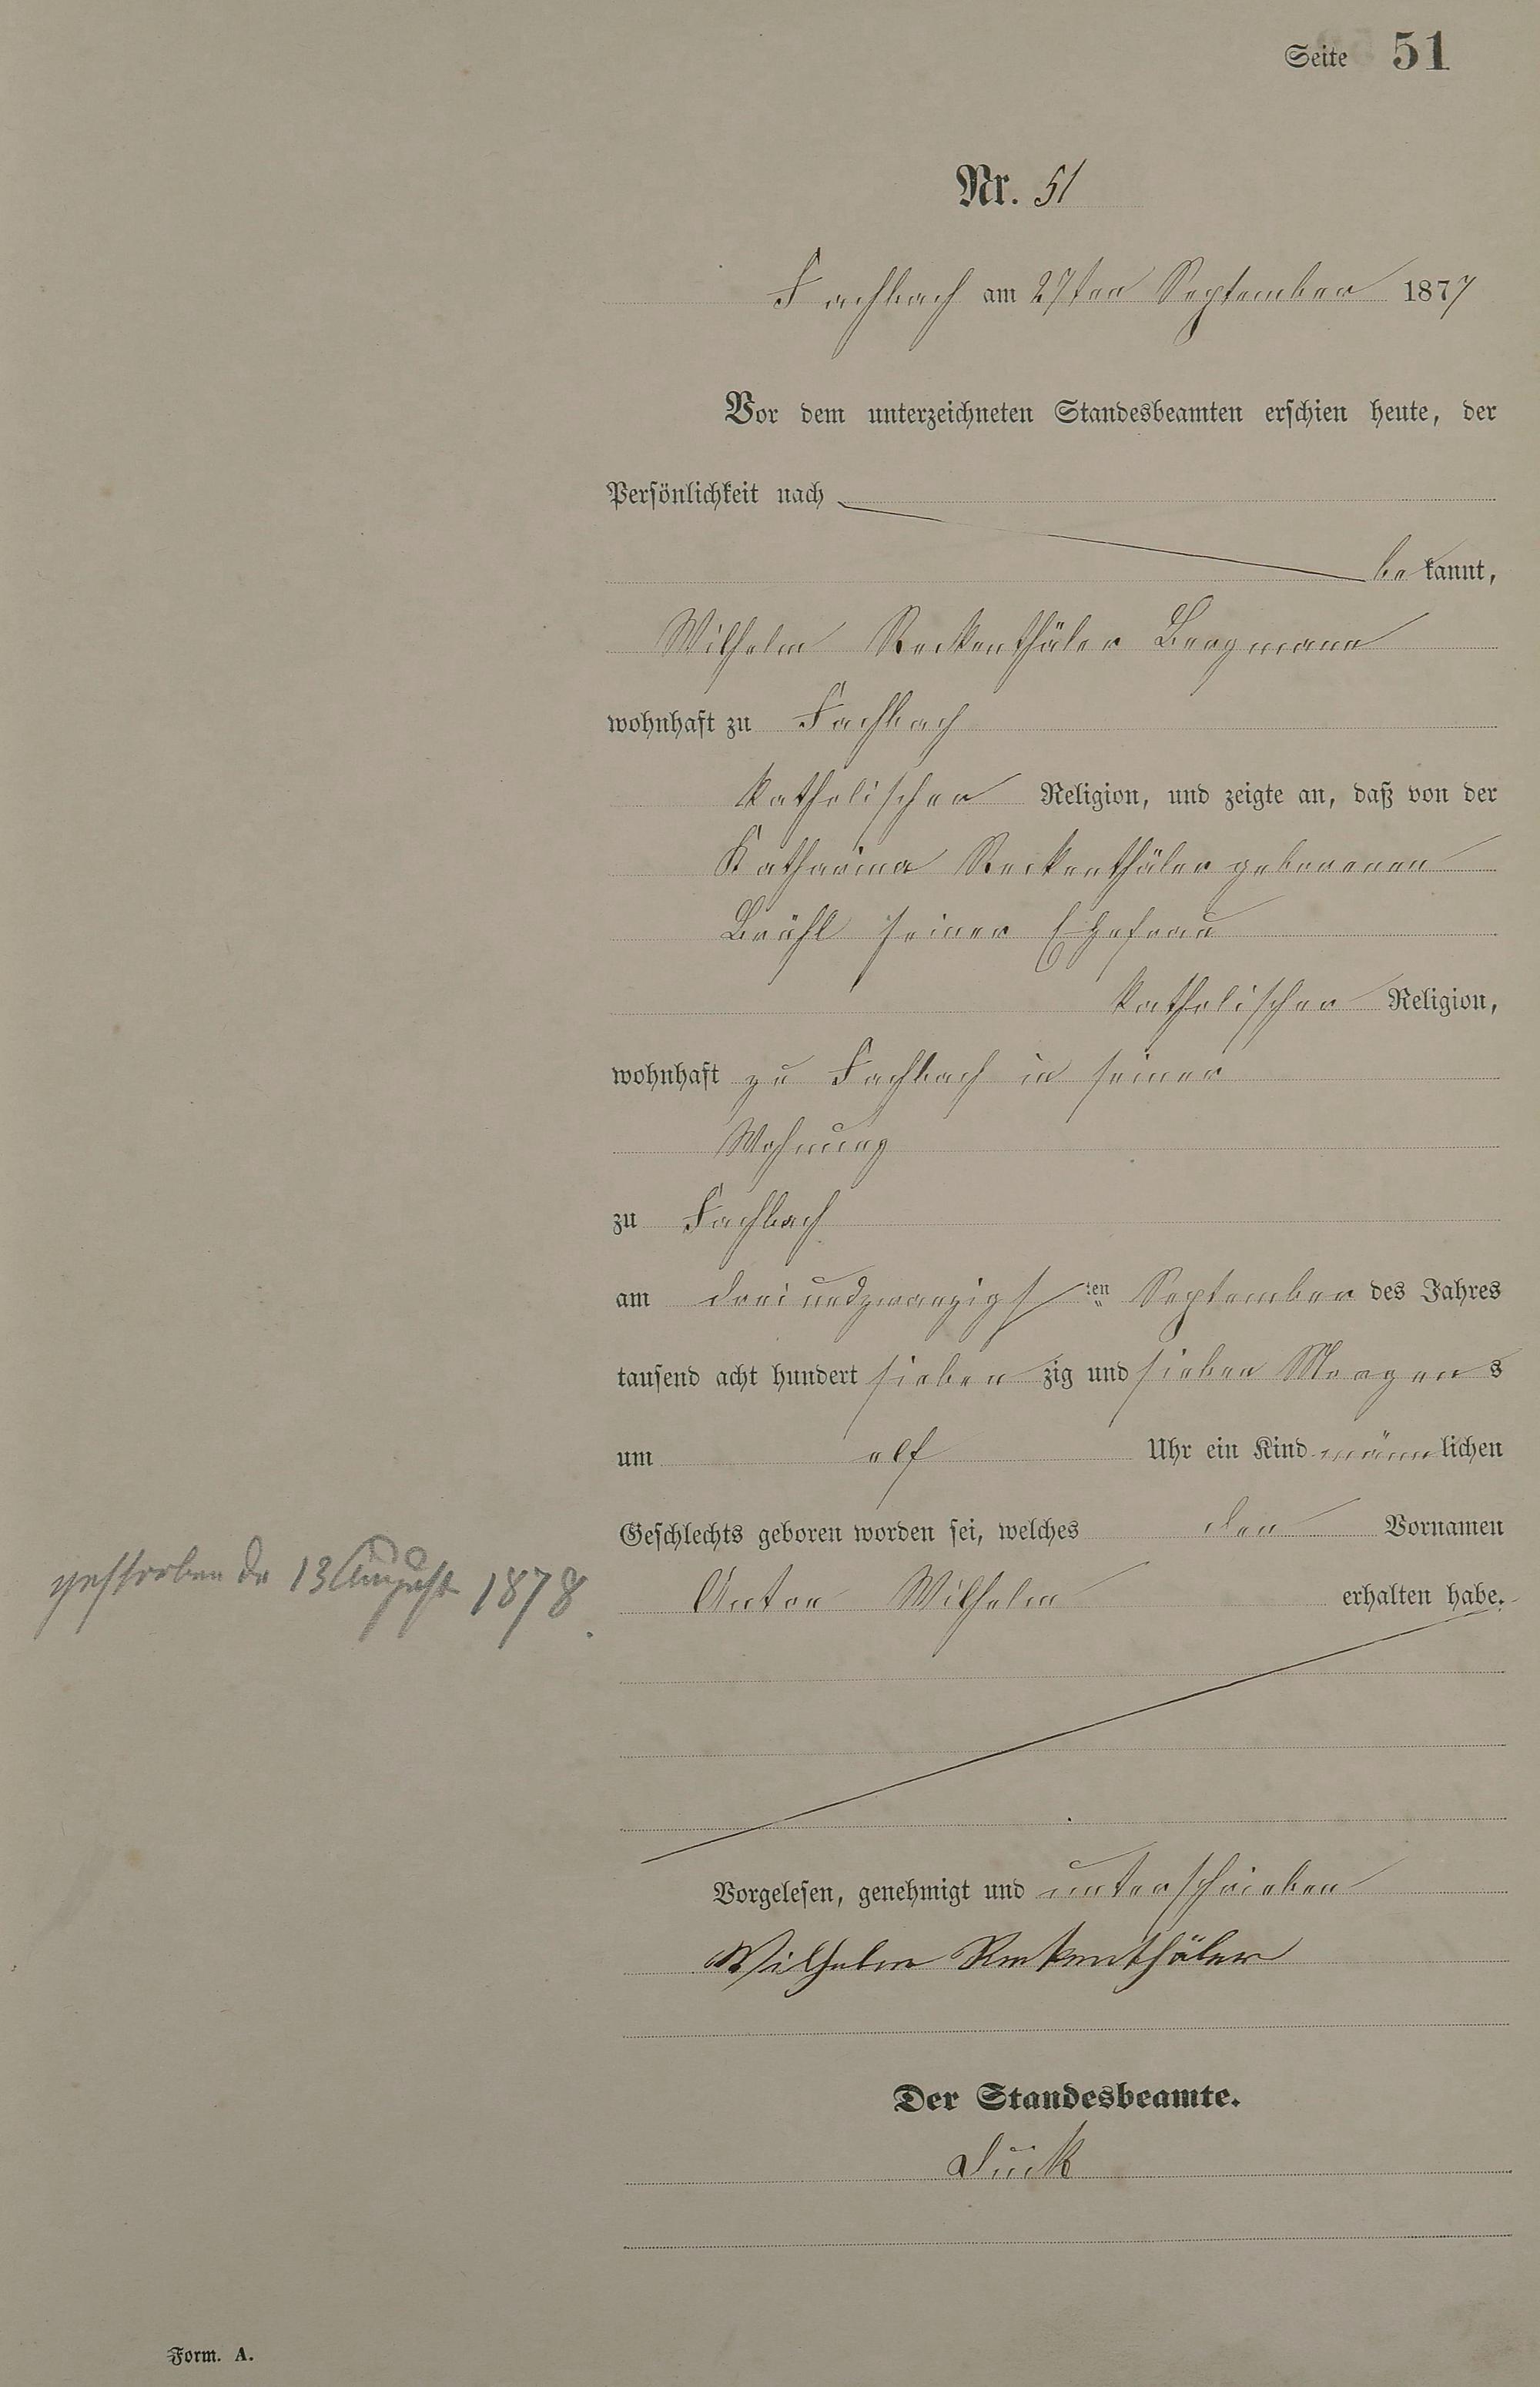 Seite 51
Nr. 51
Fachbach am 27ten September 1877
Vor dem unterzeichneten Standesbeamten erschien heute, der
Persönlichkeit nach
be kannt,
Wilhelm Reckenthäler Bergmann
wohnhaft zu Fachbach
katholischer Religion, und zeigte an, daß von der
Katharina Reckenthäler geborenen
Brühl seiner Ehefrau
katholischer Religion,
wohnhaft zu Fachbach in seiner
Wohnung
zu Fachbach
am dreiundzwanzigsten September des Jahres
tausend acht hundert sieben zig und sieben Morgens
um elf Uhr ein Kind männlichen
Geschlechts geboren worden sei, welches den Vornamen
gestorben de 13 August 1878.
Anton Wilhelm erhalten habe.
Vorgelesen, genehmigt und unterschrieben
Wilhelm Rekenthäler
Der Standesbeamte.
Form. A.